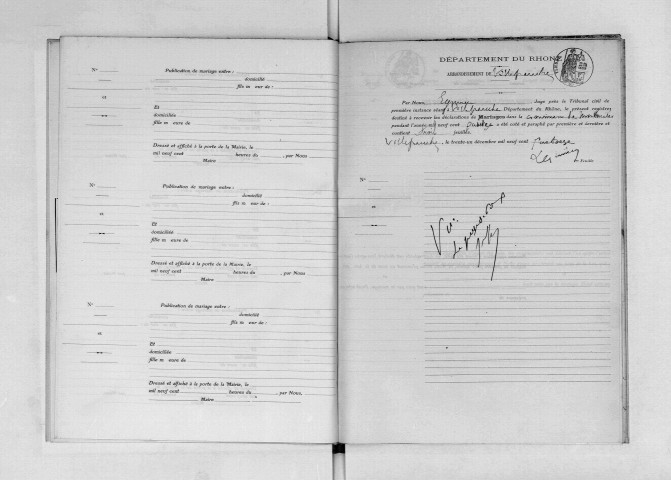 N°
Publication de mariage entre :
domicilié
fils m eur de :
et
Et
domiciliée
fille m eure de
Dressé et affiché à la porte de la Mairie, le
mil neuf cent heures du , par Nous
Maire
N°
Publication de mariage entre :
domicilié
fils m eur de :
et
Et
domiciliée
fille m eure de
Dressé et affiché à la porte de la Mairie, le
mil neuf cent heures du , par Nous
Maire
N°
Publication de mariage entre :
domicilié
fils m eur de :
et
Et
domiciliée
fille m eure de
Dressé et affiché à la porte de la Mairie, le
mil neuf cent heures du , par Nous,
Maire
DÉPARTEMENT DU RHONE
ARRONDISSEMENT DE Villefranche
Par Nous Juge près le Tribunal civil de
première instance séant à Villefranche Département du Rhône, le présent registre,
destiné à recevoir les déclarations de Mariages dans la commune de
pendant l'année mil neuf cent quinze a été coté et paraphé par première et dernière et
contient trois feuilles
Villefranche, le trente un décembre mil neuf cent quatorze
er Feuille
N°
et
Vu :